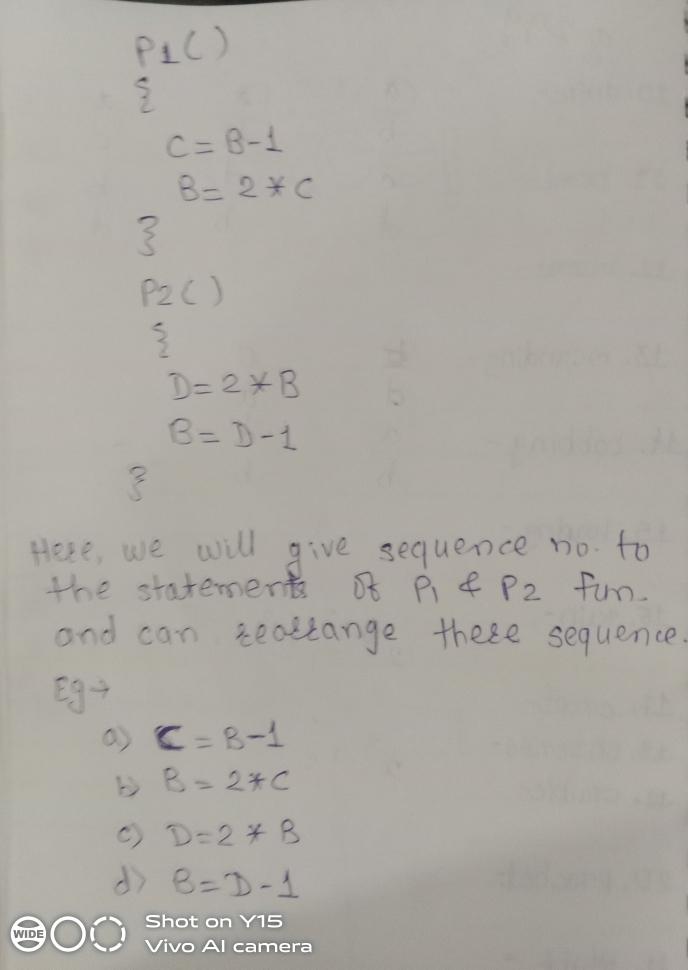 P1()
{
C = B-1
B = 2 * C
}
P2()
{
D = 2 * B
B = D - 1
}
Here, we will give sequence no. to
the statements of P1 & P2 fun.
and can rearrange these sequence.
Eg→
a) C = B-1
b) B = 2*C
c) D = 2 * B
d) B = D - 1
WIDE
Shot on Y15
Vivo AI camera